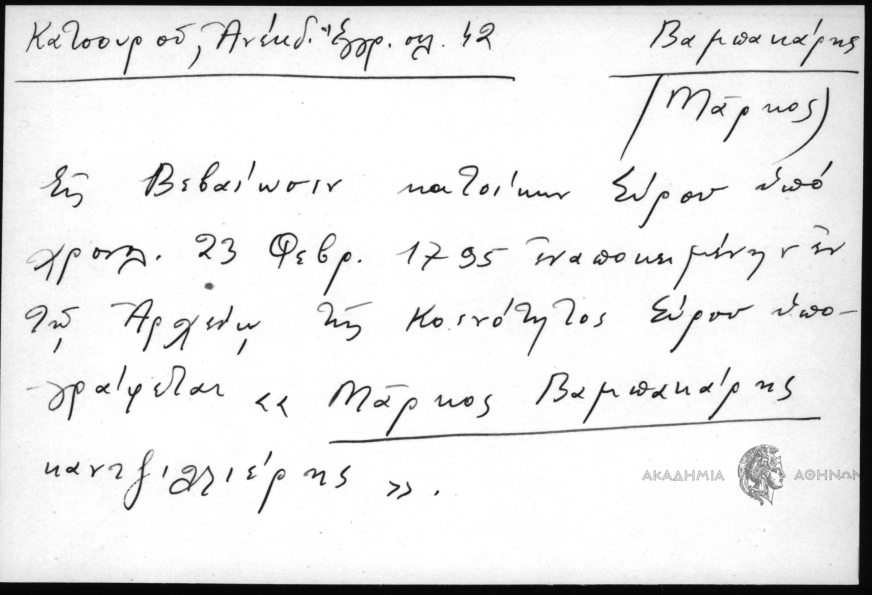 Κατσουροῦ, Ἀνέκδ. Ἔγγρ. σελ. 42
Βαμπακάρης
(Μᾶρκος)
Εἰς Βεβαίωσιν κατοίκων Σύρου ὑπό
χρονολ. 23 Φεβρ. 1795 ἐναποκειμένην ἐν
τῷ Ἀρχείῳ τῆς Κοινότητος Σύρου ὑπο-
γράφεται «Μᾶρκος Βαμπακάρης
καντζιλιέρης».
ΑΚΑΔΗΜΙΑ ΑΘΗΝΩΝ